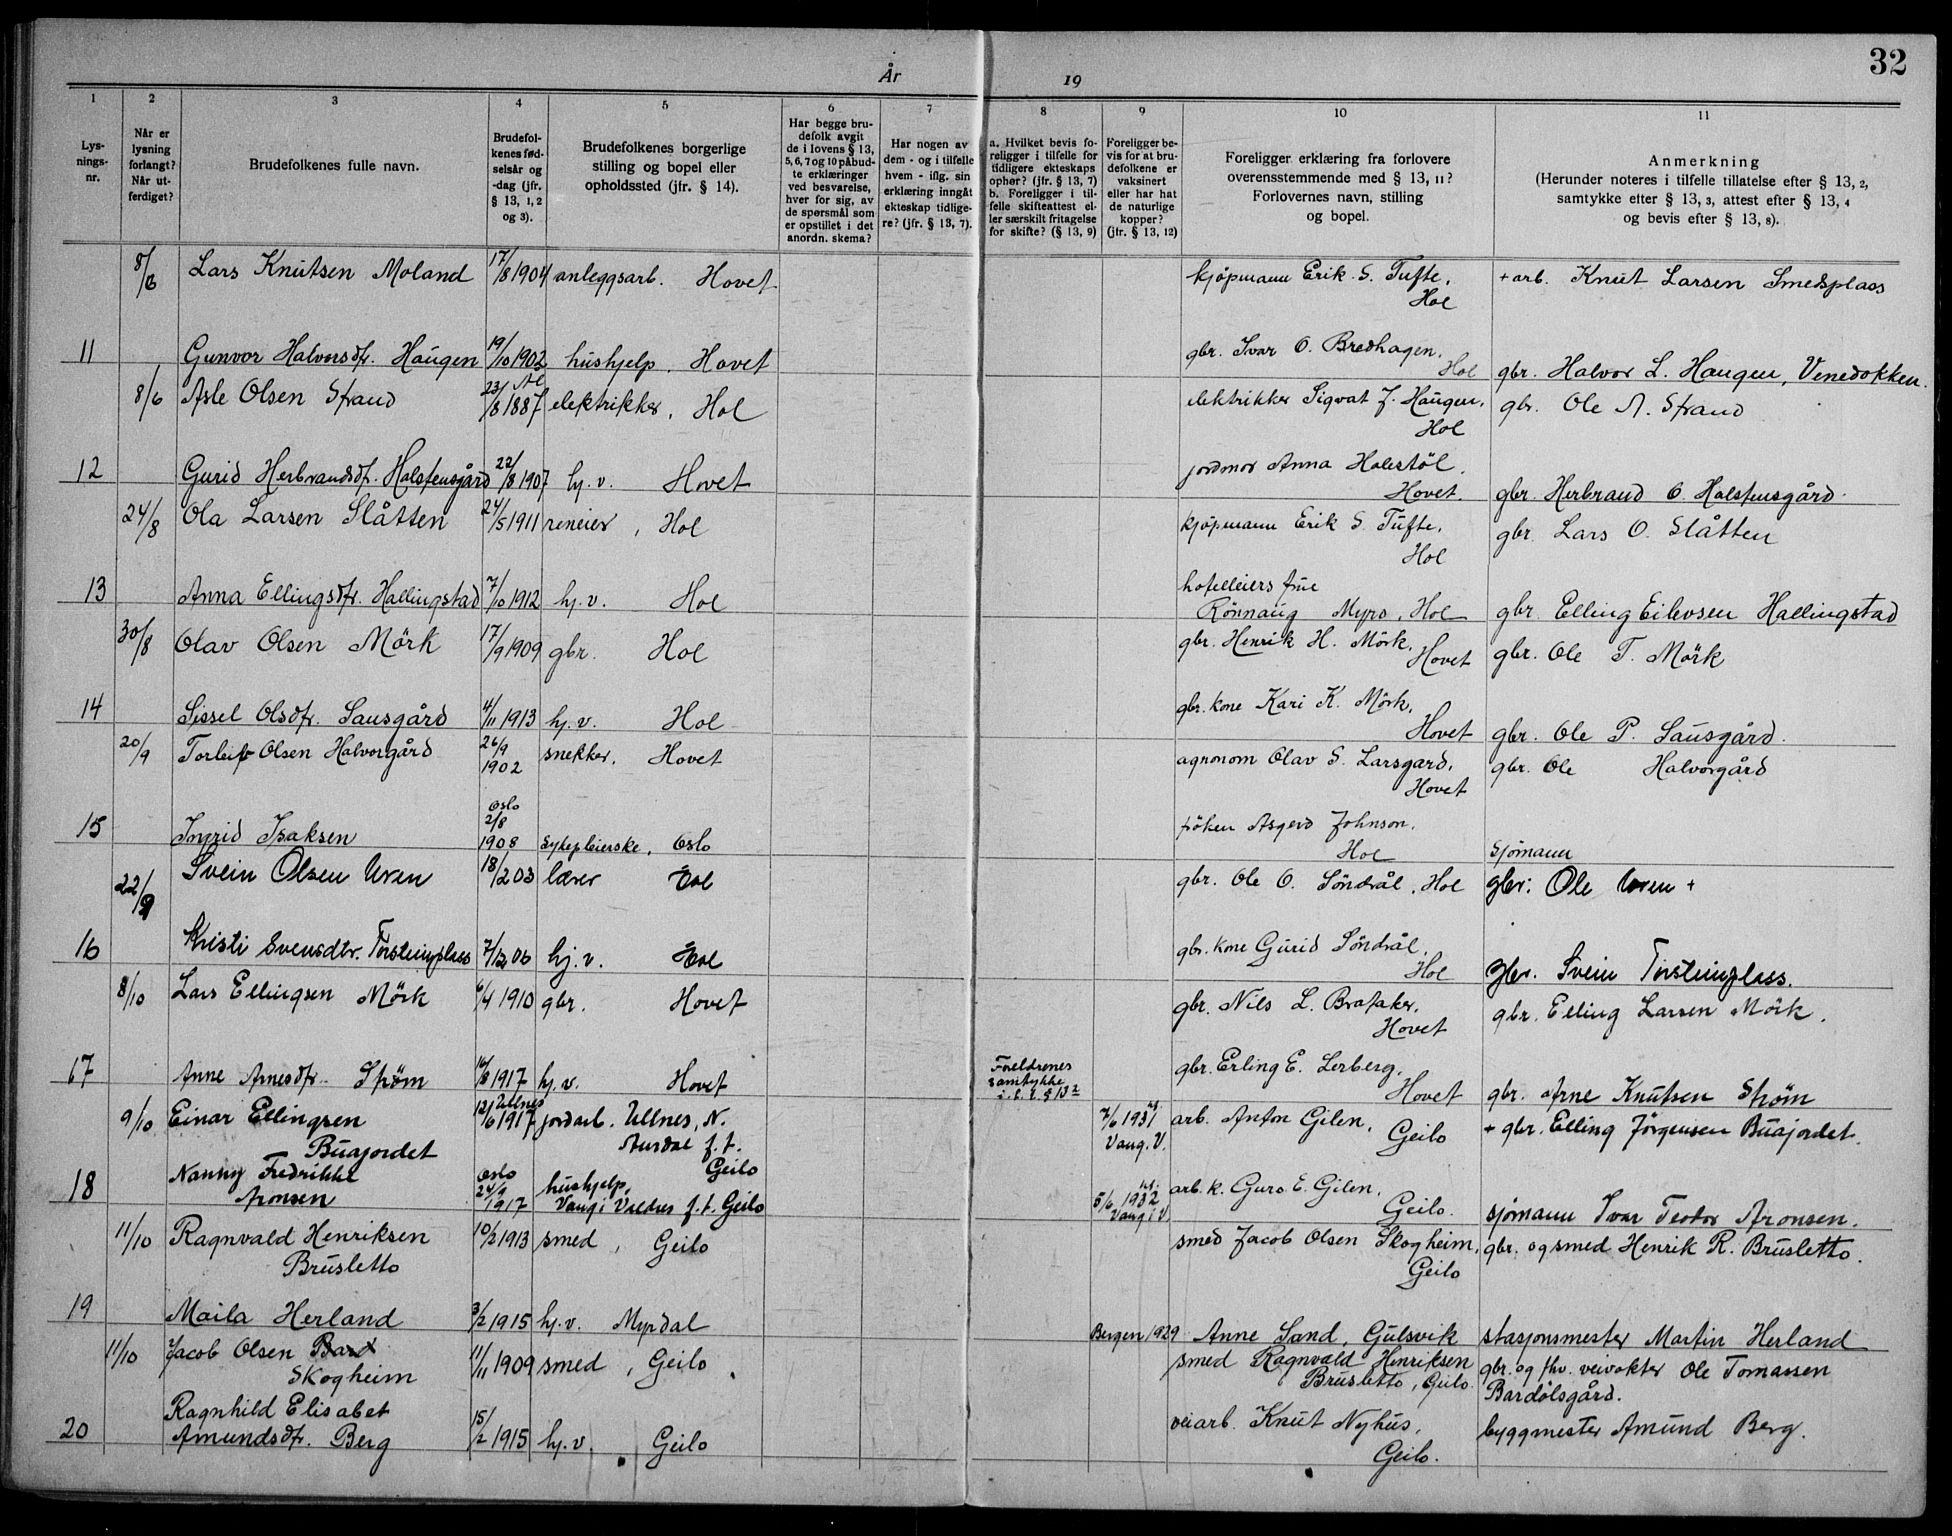 32
År 19
1 2 3 4 5 6 7 8 9 10 11
Lys-
nings-
nr.
Når er
lysning
forlangt?
Når ut-
ferdiget?
Brudefolkenes fulle navn.
Brudefol-
kenes fød-
selsår og
-dag (jfr.
§ 13, 1, 2
og 3).
Brudefolkenes borgerlige
stilling og bopel eller
opholdssted (jfr. § 14).
Har begge bru-
defolk avgit
de i lovens § 13,
5, 6, 7 og 10 påbud-
te erklæringer
ved besvarelse,
hver for sig, av
de spørsmål som
er opstillet i det
anordn. skema?
Har nogen av
dem - og i tilfelle
hvem - iflg. sin
erklæring inngåt
ekteskap tidlige-
re? (jfr. § 13, 7).
a. Hvilket bevis fo-
religger i tilfelle for
tidligere ekteskaps
ophør? (jfr. § 13, 7)
b. Foreligger i til-
felle skifteattest el-
ler særskilt fritagelse
for skifte? (§ 13, 9)
Foreligger be-
vis for at bru-
defolkene er
vaksinert
eller har hat
de naturlige
kopper?
(jfr. § 13, 12)
Foreligger erklæring fra forlovere
overensstemmende med § 13, 11?
Forlovernes navn, stilling
og bopel.
Anmerkning
(Herunder noteres i tilfelle tillatelse efter § 13, 2,
samtykke efter § 13, 3, attest efter § 13, 4
og bevis efter § 13, 8).
8/6 Lars Knutsen Moland 17/8 1904 anleggsarb. Hovet kjöpmann Erik S. Tufte, + arb. Knut Larsen Smedsplass
Hol
11 Gunvor Halvorsdtr. Haugen 19/10 1902 hushjelp, Hovet gbr. Ivar O. Bredhagen, Hol gbr. Halvor L. Haugen, Venedokken.
8/6 Asle Olsen Strand 23/8 1887 Ål elektriker, Hol elektrikker Sigvat J. Haugen, gbr. Ole A. Strand
Hol
12 Gurid Herbrandsdtr. Holstensgård 22/8 1907 hj. v. Hovet jordmor Anna Holestöl,
Hovet. gbr. Herbrand O. Holstensgård.
24/8 Ola Larsen Slåtten 24/5 1911 reneier, Hol kjöpmann Erik S. Tufte, gbr. Lars O. Slåtten
Hol
13 Anna Ellingsdtr. Hallingstad 7/10 1912 hj. v. Hol hotelleiers frue
Rönnaug Myro, Hol gbr. Elling Eilevsen Hallingstad
30/8 Olav Olsen Mörk 17/9 1909 gbr. Hol gbr. Henrik H. Mörk, Hovet gbr. Ole T. Mörk
14 Sissel Olsdtr. Sausgård 4/11 1913 hj. v. Hol gbr. kone Kari K. Mörk,
Hovet gbr. Ole P. Sausgård.
20/9 Torleif Olsen Halvorgård 26/9 1902 snekker, Hovet agronom Olav S. Larsgard, gbr. Ole Halvorgård
Hovet
15 Ingrid Isaksen Oslo 2/8 1908 sykepleierske, Oslo fröken Asgerd Johnson,
Hol sjömann
22/9 Svein Olsen Uren 18/2 03 lærer Hol gbr. Ole O. Söndrål, Hol gbr. Ole Uren +
16 Kristi Svensdtr. Torsteinplass 7/12 06 hj. v. Hol gbr. kone Gurid Söndrål,
Hol gbr. Svein Torsteinplass.
8/10 Lars Ellingsen Mörk 6/4 1910 gbr. Hovet gbr. Nils L. Brataker, gbr. Elling Larsen Mörk.
Hovet
17 Anne Arnesdtr. Strøm 16/8 1917 hj. v. Hovet Foreldrenes
samtykke
gbr. Erling E. Lerberg,
Hovet gbr. Arne Knutsen Strøm
9/10 Einar Ellingsen Buajordet 12/6 1917 Ullnes jordarb. Ullnes, N. Aurdal f. t. Geilo 7/6 1931 Vang. V. arb. Anton Gilen, Geilo + gbr. Elling Jörgensen Buajordet.
18 Nanny Fredrikke Aronsen Oslo 24/9 1917 hushjelp, Vang i Valdres f. t. Geilo 5/6 1932 Vang i V. arb. k. Guro E. Gilen,
Geilo. sjömann Ivar Teodor Aronsen.
11/10 Ragnvald Henriksen Brusletto 10/2 1913 smed, Geilo smed Jacob Olsen Skogheim, gbr. og smed Henrik R. Brusletto.
Geilo
19 Maila Herland 3/2 1915 hj. v. Myrdal Bergen 1929 Anne Sand, Gulsvik stasjonsmester Martin Herland
11/10 Jacob Olsen Bard Skogheim 11/11 1909 smed, Geilo smed Ragnvald Henriksen Brusletto, Geilo gbr. og fhv. veivokter Ole Tomassen Bardölsgård.
20 Ragnhild Elisabet Amundsdtr. Berg 15/2 1915 hj. v. Geilo veiarb. Knut Nyhus, byggmester Amund Berg.
Geilo.